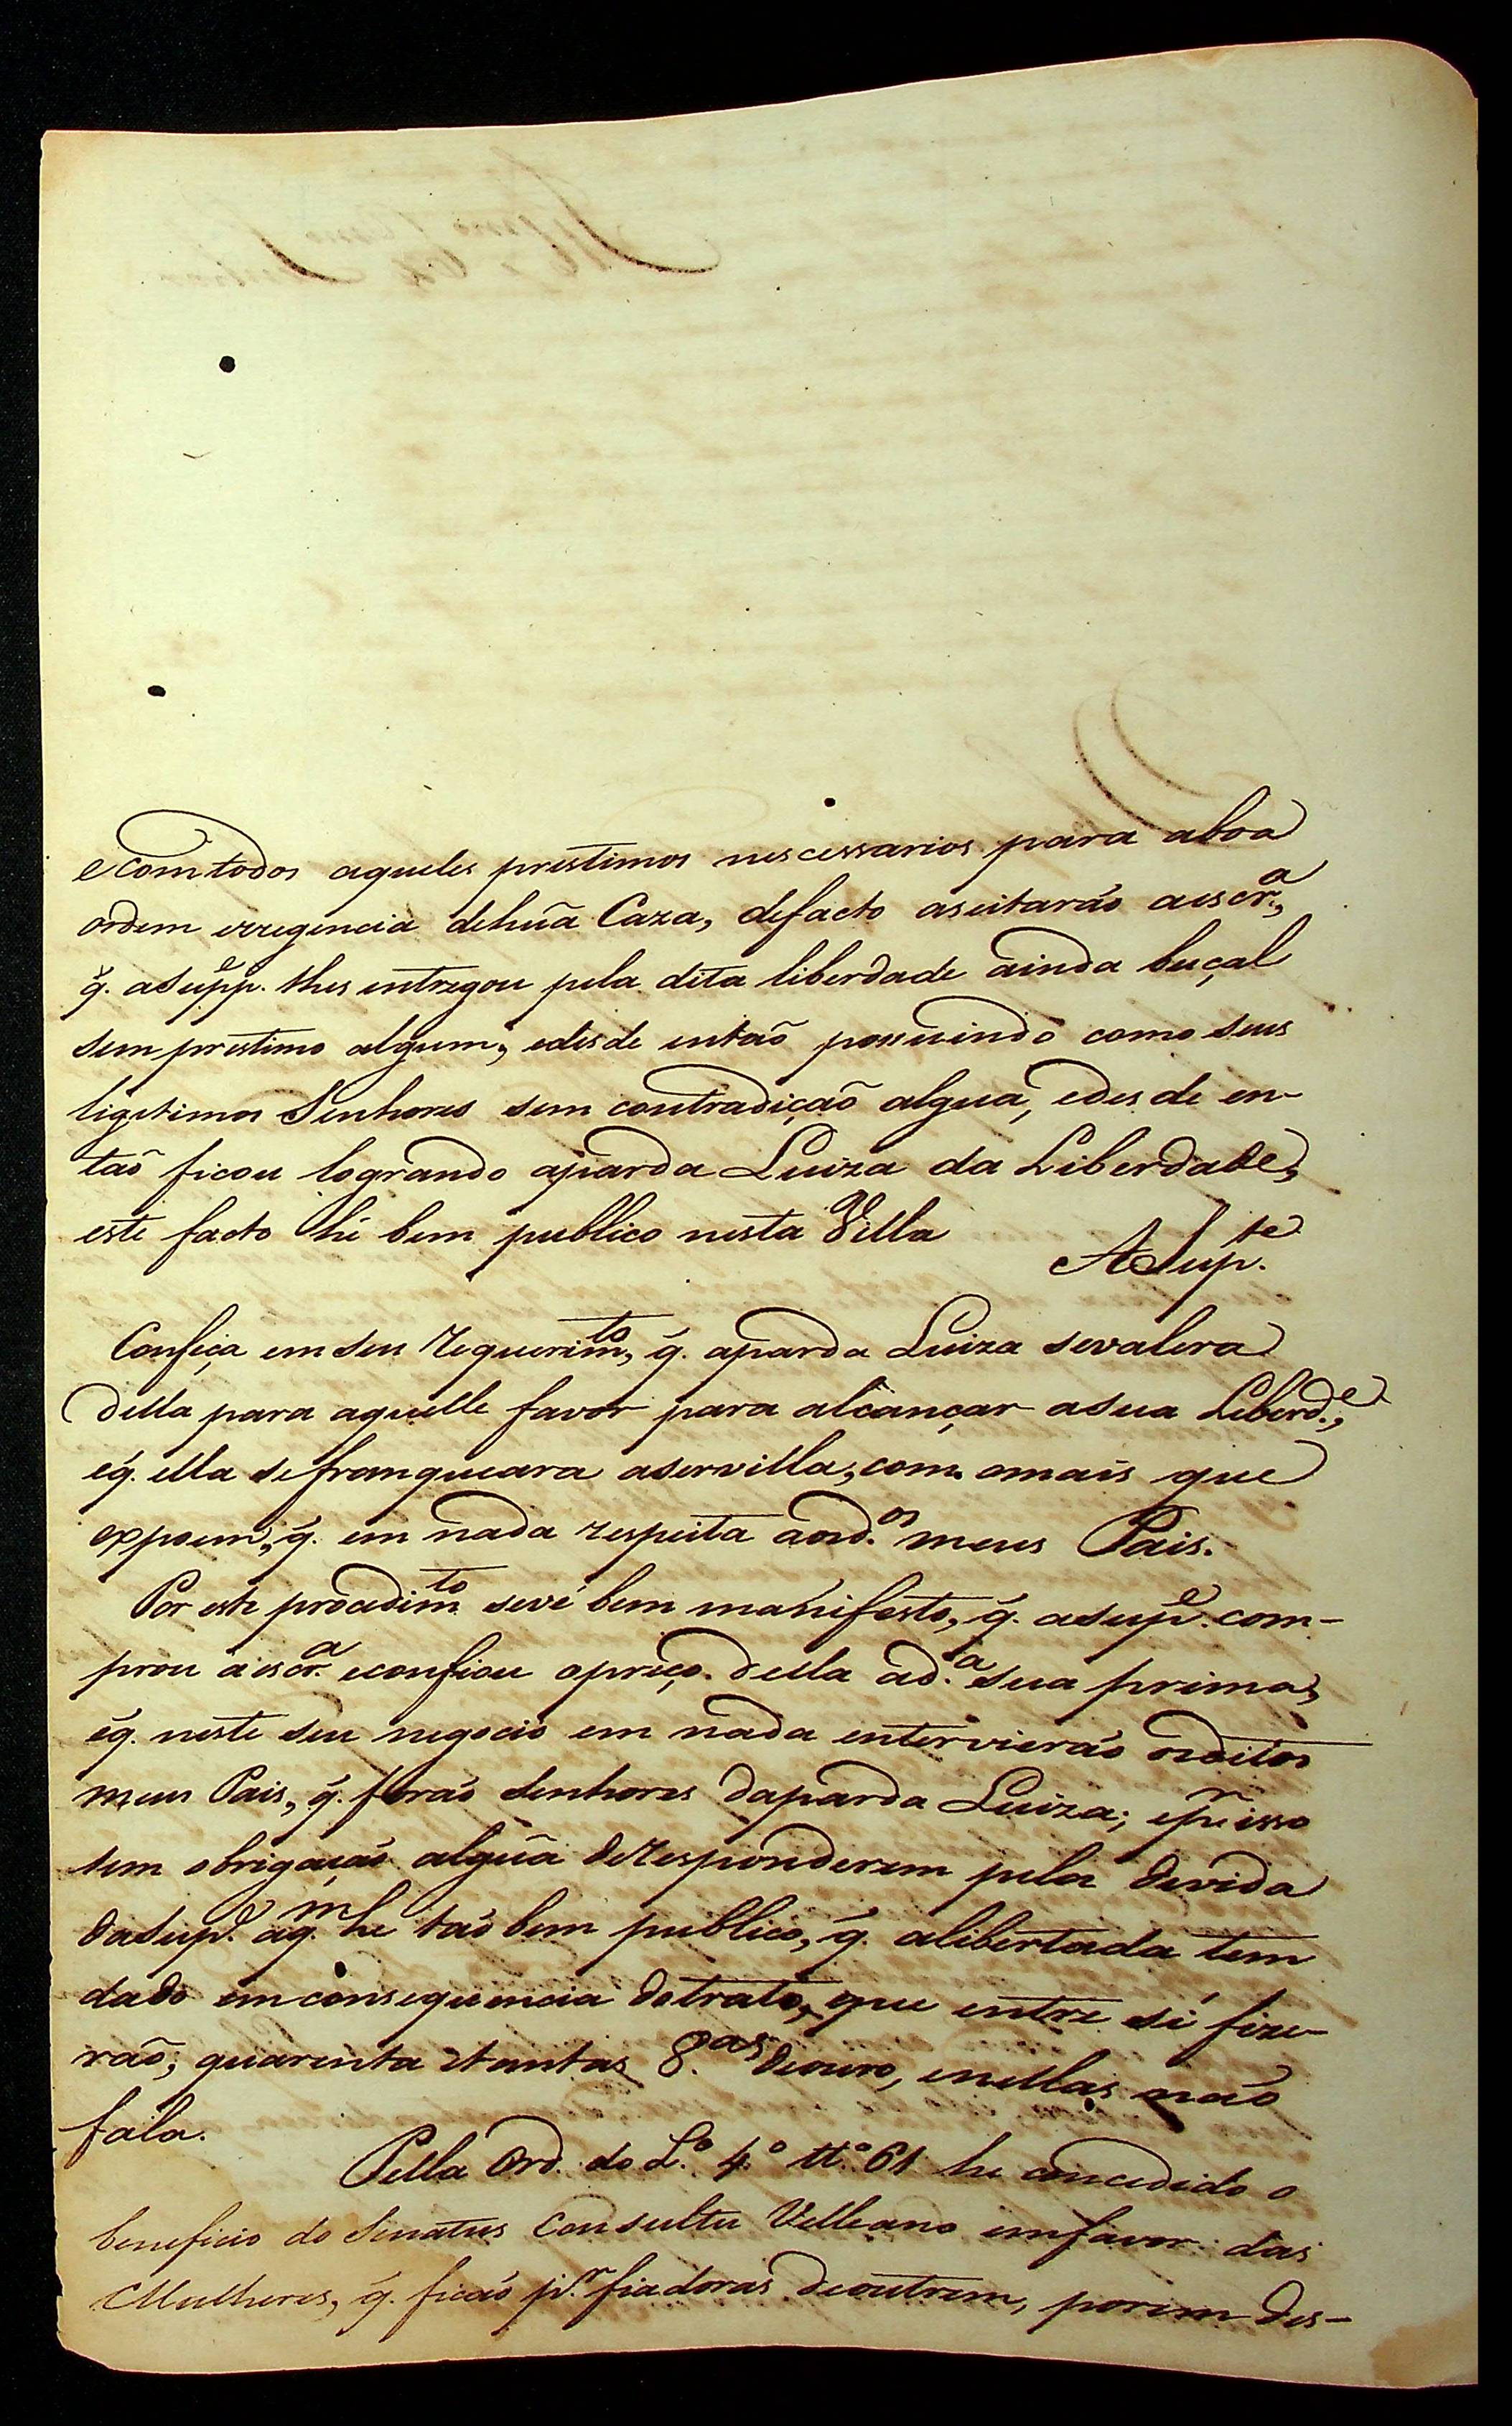 ecom todos aqueles prestimos nescessarios para aboa
ordem erregencia dehuã Caza, defacto aseitarão aescr.ª,
q̃. aSupp.e lhes entregou pela dita liberdade ainda buçal
sem prestimo algum, edesde então possuindo como seus
ligitimos Senhores sem contradição algua, edesde en-
taõ ficou logrando aparda Luiza da Liberdade,
este facto hé bem publico nesta Villa
ASup.te
Confeça em seu requerim.to, q̃. aparda Luiza sevalera
della para aquelle favor para alcançar asua Liberd.e,
eq̃. ella sefranqueara aservilla, com omais que
expoem, q̃. em nada respeita aod.os meus Pais.
Por este procedim.to sevé bem manifesto, q̃. aSup.e com-
prou aescr.ª econfiou opreço della ad.ª sua prima,
eq̃. neste seu negocio em nada intervierão osditos
meus Pais, q̃. forão Senhores daparda Luiza; ep.r isso
sem obrigação algũa deresponderem pela devida
daSup.e aq.m he tão bem publico, q̃. alibertada tem
dado emconsequencia dotrato, que entre sí fize-
raõ, quarenta etantas 8.as deouro, enellas não
fala.
Pella Ord. do L.º 4.º tt.º 61 he concedido o
beneficio do Senatus Consultu Velleano emfavor das
Mulheres, q̃. ficão p.r fiadoras deoutrem, porem des-